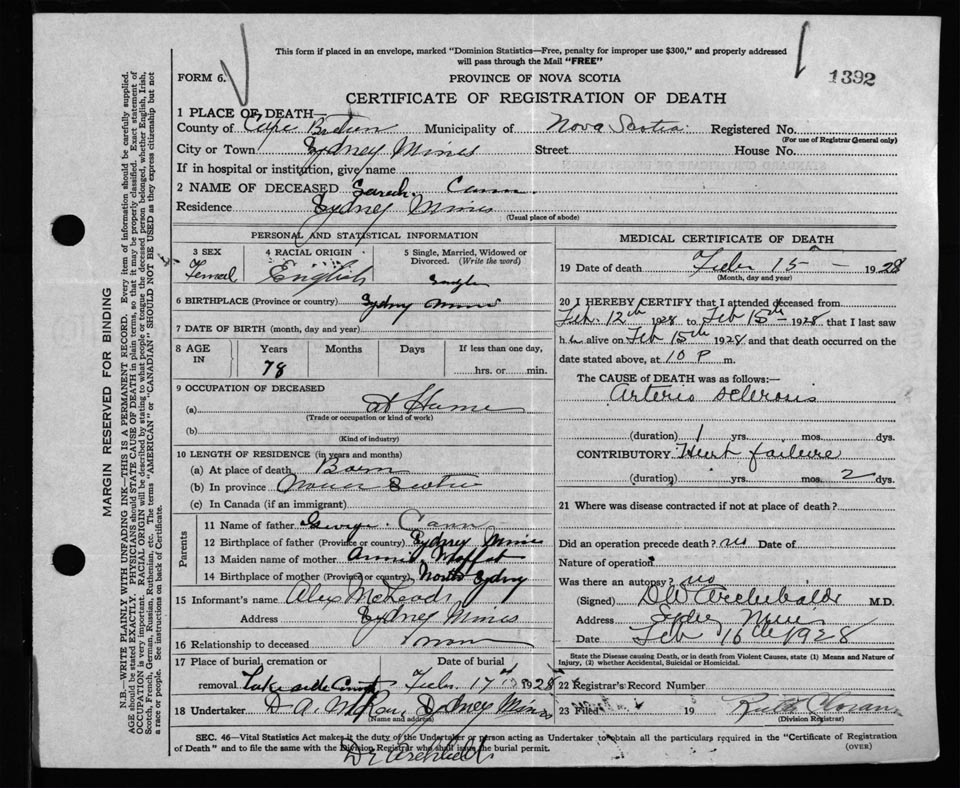 This form if placed in an envelope, marked "Dominion Statistics—Free, penalty for improper use $300," and properly addressed
will pass through the Mail "FREE"
FORM 6.
PROVINCE OF NOVA SCOTIA
1392
CERTIFICATE OF REGISTRATION OF DEATH
1 PLACE OF DEATH
County of Cape Breton Municipality of Nova Scotia Registered No.
(For use of Registrar General only)
City or Town Sydney Mines Street House No.
If in hospital or institution, give name
2 NAME OF DECEASED Sarah Cann.
Residence Sydney Mines
(Usual place of abode)
PERSONAL AND STATISTICAL INFORMATION
3 SEX 4 RACIAL ORIGIN 5 Single, Married, Widowed or
Divorced. (Write the word)
Femal English Single
6 BIRTHPLACE (Province or country) Sydny Mines
7 DATE OF BIRTH (month, day and year)
8 AGE IN Years Months Days If less than one day,
78 hrs. or min.
9 OCCUPATION OF DECEASED
(a) at Home
(Trade or occupation or kind of work)
(b)
(Kind of industry)
10 LENGTH OF RESIDENCE (in years and months)
(a) At place of death Born
(b) In province Nova Scotia
(c) In Canada (if an immigrant)
Parents
11 Name of father George Cann
12 Birthplace of father (Province or country) Sydney Mines
13 Maiden name of mother Annie Moffat
14 Birthplace of mother (Province or country) North Sydny
15 Informant's name Alex McLeod
Address Sydney Mines
16 Relationship to deceased
17 Place of burial, cremation or Date of burial
removal Lakeside Feb. 17 1928
18 Undertaker D. A. Sydney Mines
(Name and address)
MEDICAL CERTIFICATE OF DEATH
19 Date of death Feb 15 1928
(Month, day and year)
20 I HEREBY CERTIFY that I attended deceased from
Feb. 12th 1928 to Feb 15th 1928 that I last saw
h alive on Feb 15th 1928 and that death occurred on the
date stated above, at 10 P m.
The CAUSE of DEATH was as follows:—
Arterio sclerosis
(duration) 1 yrs. mos. dys.
CONTRIBUTORY Heart failure
(duration) yrs. mos. 2 dys.
21 Where was disease contracted if not at place of death?
Did an operation precede death? no Date of
Nature of operation
Was there an autopsy? no
(Signed) DW Archibald M.D.
Address Sydney Mines
Date Feb 16th 1928
State the Disease causing Death, or in death from Violent Causes, state (1) Means and Nature of
Injury, (2) whether Accidental, Suicidal or Homicidal.
22 Registrar's Record Number
23 Filed 19 Ruth
(Division Registrar)
SEC. 46—Vital Statistics Act makes it the duty of the Undertaker or person acting as Undertaker to obtain all the particulars required in the "Certificate of Registration
of Death" and to file the same with the Division Registrar who shall issue the burial permit.
(OVER)
Dr Archibald
MARGIN RESERVED FOR BINDING
N.B.—WRITE PLAINLY WITH UNFADING INK—THIS IS A PERMANENT RECORD. Every item of information should be carefully supplied.
AGE should be stated EXACTLY. PHYSICIANS should STATE CAUSE OF DEATH in plain terms, so that it may be properly classified. Exact statement of
OCCUPATION is very important. RACIAL ORIGIN will be described by stating to what people or tongue the deceased person belonged, whether English, Irish,
Scotch, French, German, Russian, Ruthenian, etc. The terms "AMERICAN" or "CANADIAN" SHOULD NOT BE USED as they express citizenship but not
a race or people. See instructions on back of Certificate.